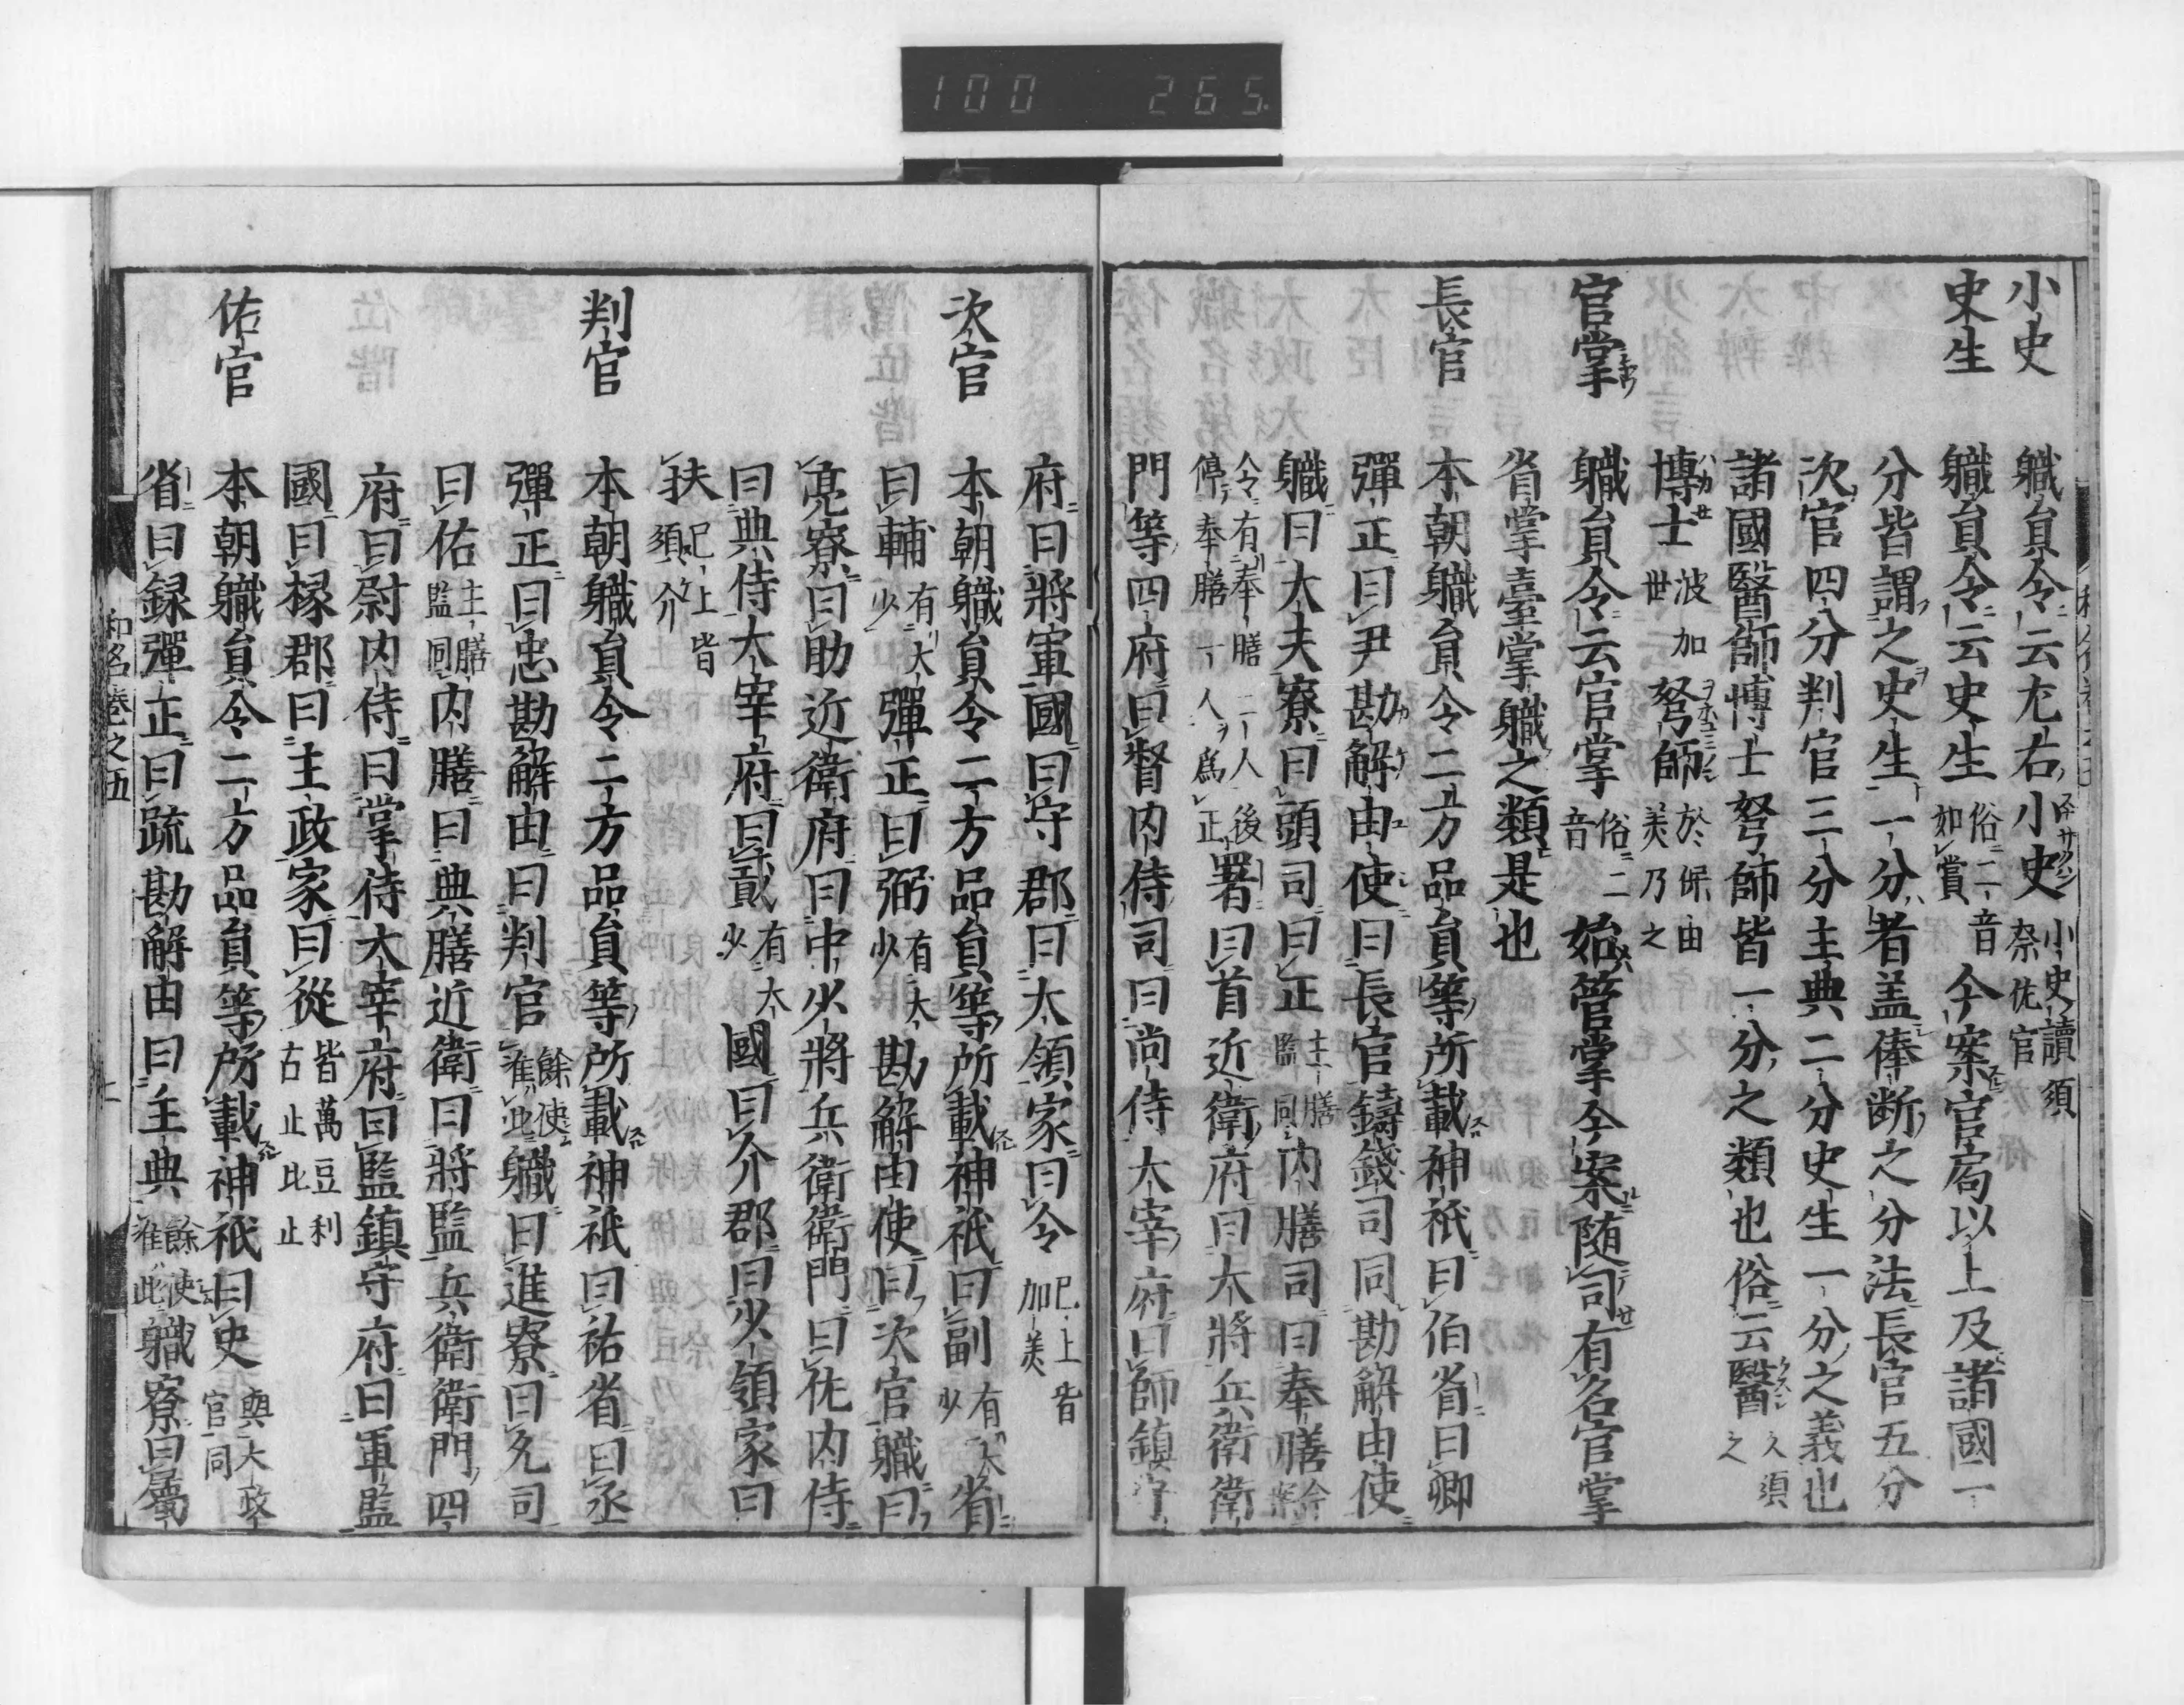 100 265.
小史 職員令云尤右小史小史讀須奈佐官
史生 職員令云史生俗二音如賞今案官局以上及諸國一
分皆謂之史生一分者盖俸断之分法長官五分
次官四分判官三分主典二分史生一分之義也
諸國醫師博士弩師皆一分之類也俗云醫久須之
博士波加世弩師於保由美乃之
官掌 職員令云官掌俗二音始管掌今案随司有名官掌
省掌臺掌職之類是也
長官 本朝職員令二方品員等所載神祇曰伯省曰卿
彈正曰尹勘解由使曰長官鑄錢司同勘解由使
職曰大夫寮曰頭司曰正主膳監同内膳司曰奉膳
令有奉膳二人後停奉膳一人爲正署曰首近衛府曰大將兵衛衛
門等四府曰督内侍司曰尚侍太宰府曰師鎮守
府曰將軍國曰守郡曰大領家曰令已上皆加美
次官 本朝職員令二方品員等所載神祇曰副有大少省
曰輔有大少彈正曰弼有大少勘解由使曰次官職曰
亮寮曰助近衛府曰中少將兵衛衛門曰佐内侍
曰典侍太宰府曰貳有大少國曰介郡曰少領家曰
扶已上皆須介
判官 本朝職員令二方品員等所載神祇曰祐省曰丞
彈正曰忠勘解由曰判官餘使准此職曰進寮曰允司
曰佑主膳監同内膳曰典膳近衛曰將監兵衛衛門四
府曰尉内侍曰掌侍太宰府曰監鎮守府曰軍監
國曰椽郡曰主政家曰從皆萬豆利古止比止
佑官 本朝職員令二方品員等所載神祇曰史與大政官同
省曰録彈正曰疏勘解由曰主典餘使准此職寮曰屬
和名卷之五